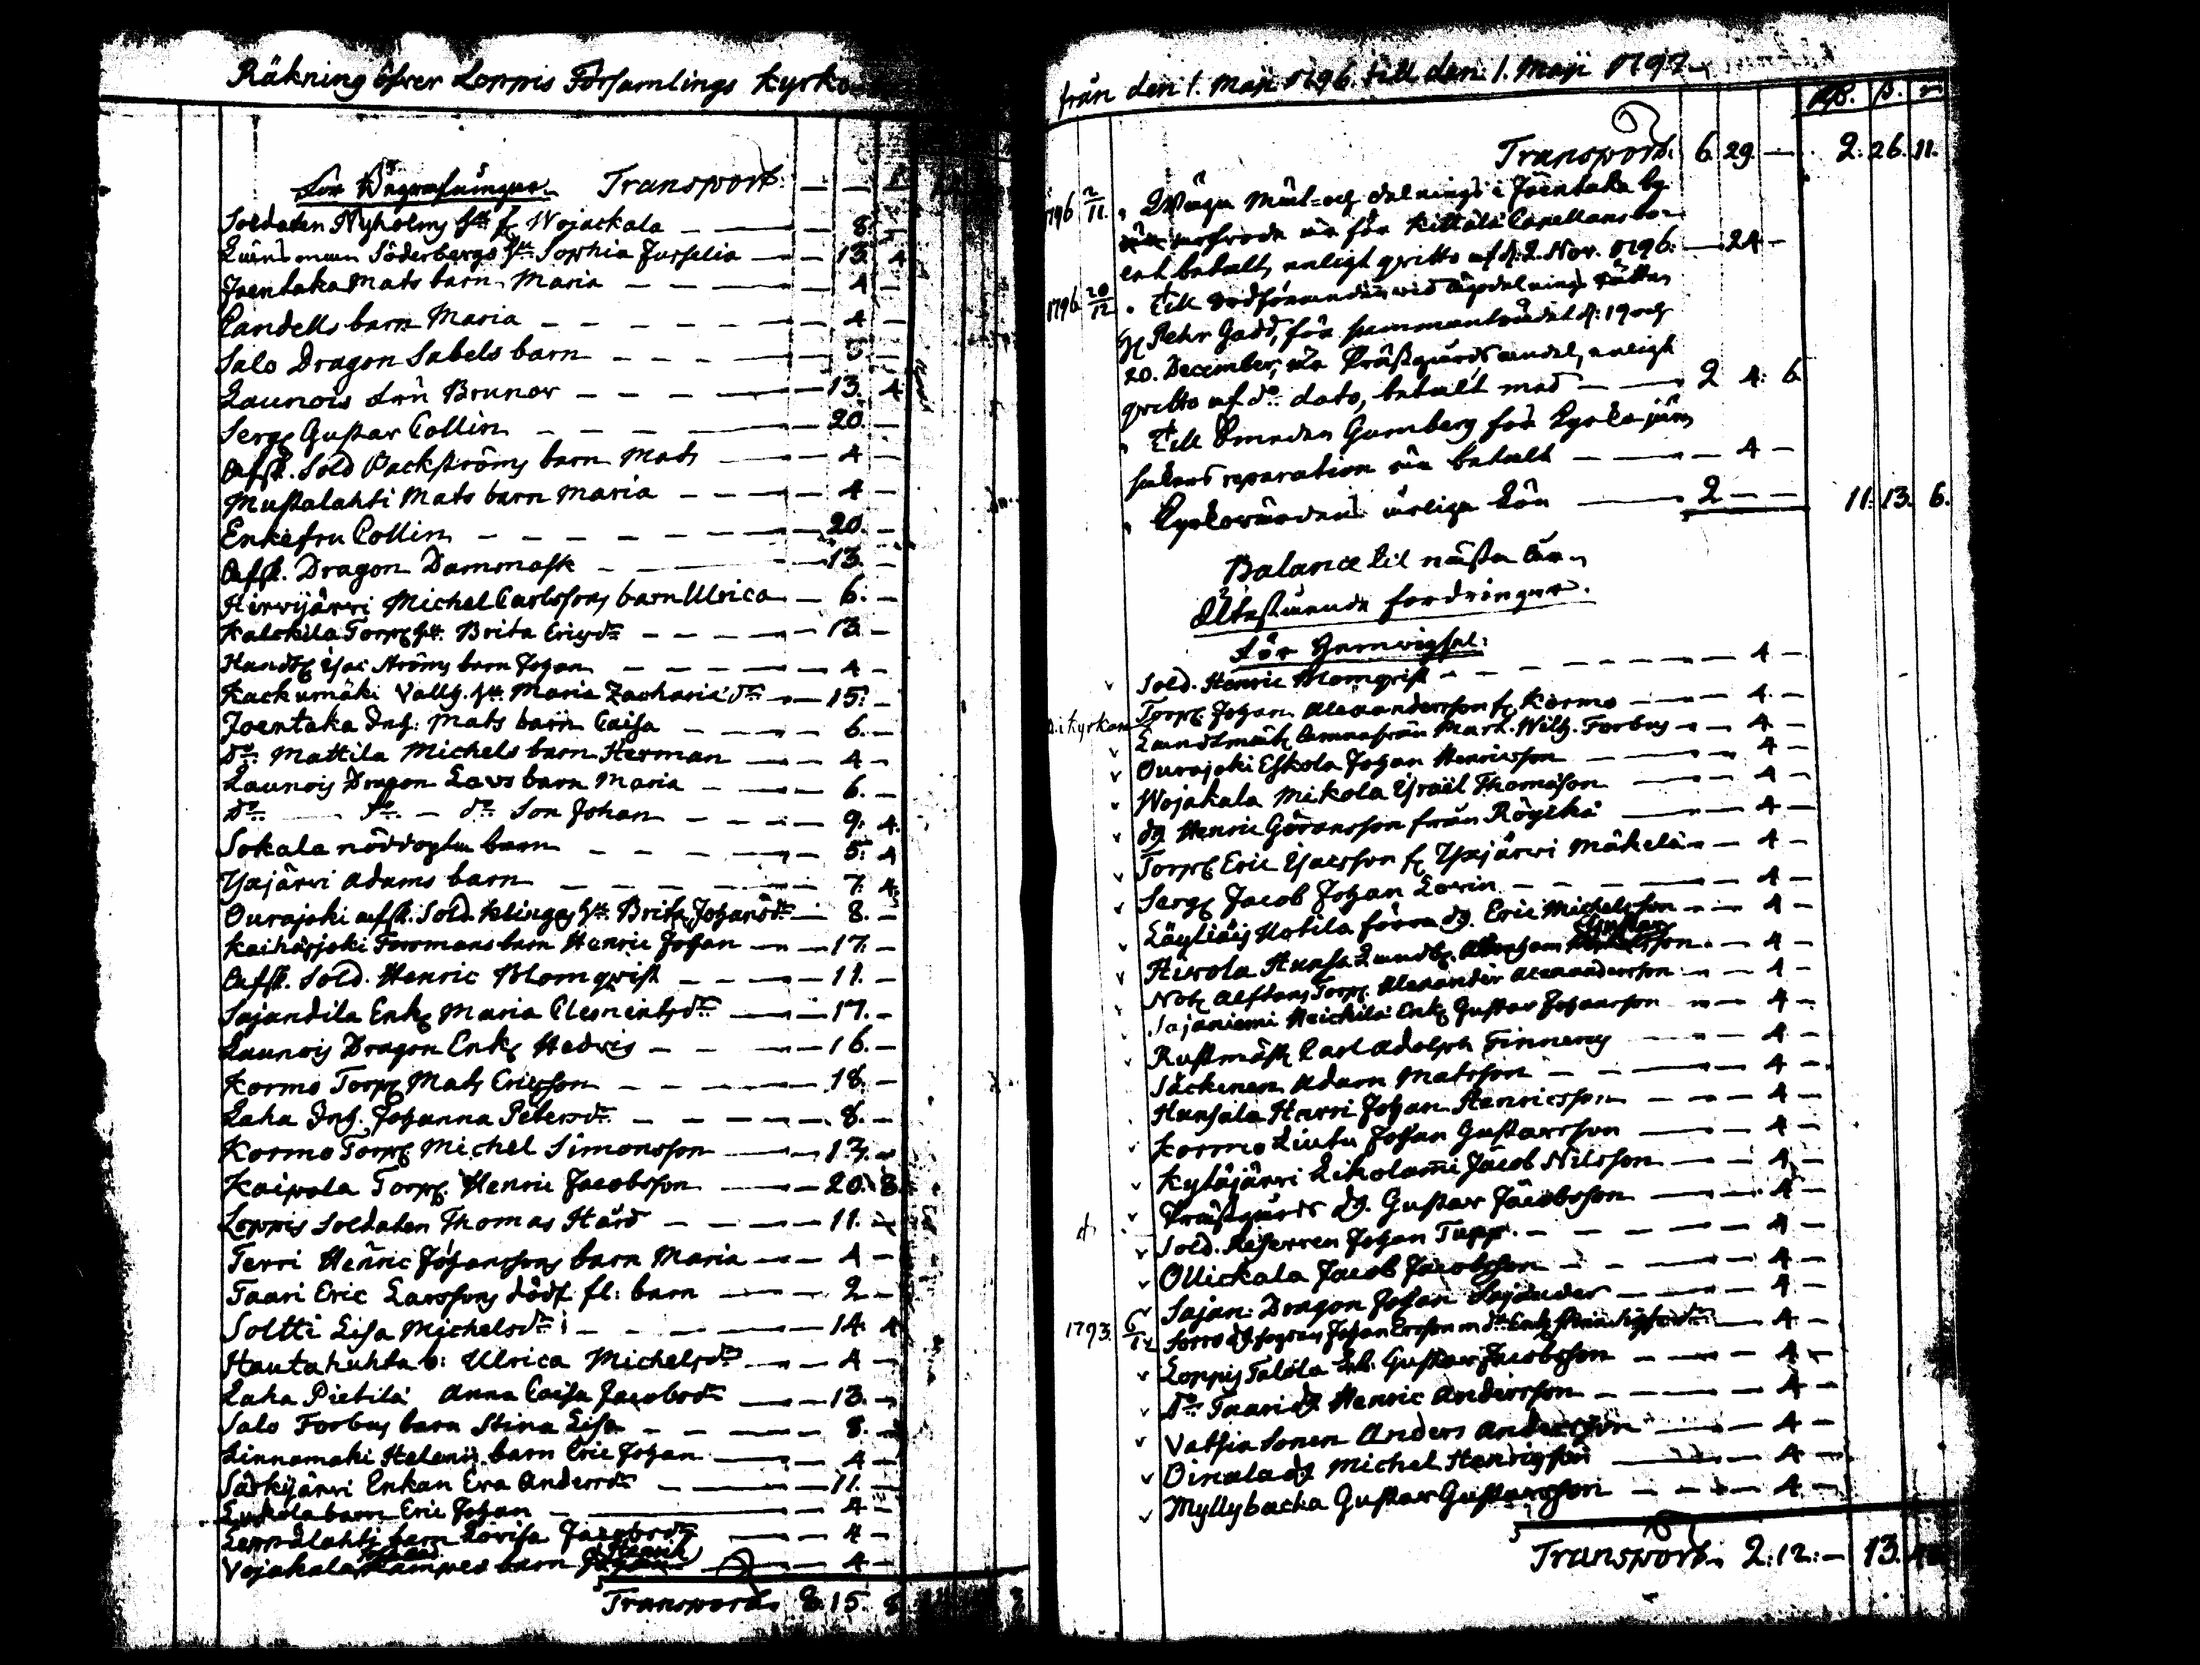 Räkning öfver Loppis Församlings Kyrko
För Begrafningar Transport — — 1
Soldaten Nyholms h:u fr Wojackala — 8. —
Länsman Söderbergs Fru Sophia Juslelia — 13. 4
Joentaka Mats barn Maria — 4 —
Landells barn Maria — 4 —
Salo Dragon Sabels barn — 5 —
Launois Brunor — 13. 4
Serg Gustav Collin — 20. —
Afsk. Sold Backströms barn Mats — 4 —
Mustalahti Mats barn Maria — 4 —
Enkefru Collin — 20. —
Afsk. Dragon Dammask — 13. —
Hirvijärvi Michel Carlssons barn Ulrica — 6. —
Kalckila Torp h:u Brita Ericsd:r — 13. —
Isac Ströms barn Johan — 4 —
Kackumäki Vallb. h:u Maria Zacharia d:r — 15. —
Joentaka Inh: Mats barn Caisa — 6. —
D:o Mattila Michels barn Herman — 4 —
Launois Dragon Lars barn Maria — 6. —
D:o D:o — d:o Son Johan — 9. 4.
Sokala barn — 5. 4
Yxjärvi Adams barn — 7. 4.
Ourajoki afsk. Sold. Klingas h:u Brita Johansd:r — 8. —
Kaiharjoki Forsmans barn Henric Johan — 17. —
Afsk. Sold. Henric Blomqvist — 11. —
Sajandila Enk Maria Clementsd:r — 17. —
Launois Dragon Enk Hedvis — 16. —
Kormo Torp Mats Ericsson — 18. —
Laha Inh. Johanna Petersd:r — 8. —
Kormo Torp Michel Simonsson — 13. —
Kaipola Torp Henric Jacobsson — 20. 8.
Loppis Soldaten Thomas Hård — 11. —
Terri Henric Johanssons barn Maria — 4 —
Taari Eric Larssons dödf fl: barn — 2 —
Soltti Lisa Michelsd:r — 14. 4
Hautahuhta b: Ulrica Michelsd:r — 4 —
Laha Pietilä Anna Caisa Jacobsd:r — 13. —
Salo Forbus barn Stina Lisa — 8. —
Linnamäki Helenis barn Eric Johan — 4 —
Särkijärvi Enkan Eva Andersd:r — 11. —
Luckola barn Eric Johan — 4 —
Lerndlahti barn Lovisa Jacobsd:r — 4 —
Vojakala barn Henrik — 4 —
Transport 8. 15. 8
från den 1. Maji 1796 till den 1. Maji 1797
Transport. 6. 29. — 2. 26. 11.
1796 2/11. i Joentaka by
för Kittälä Capellans bo-
betalt, enligt qvitto af d: 2. Nov. 1796. — 24 —
1796 20/12 Till Ordföranden wid ägodelnings rätten
H Pehr Gadd, för sammanträdet d: 19 och
20. December, Prästgårds andel, enligt
qvitto af d:o dato, betalt med — 2 4. 6
Till Smeden Gumberg för Kyrko järn
sakens reparation betalt — 4 —
Kyrkowärdens årliga Lön — 2 — — 11. 13. 6.
Balance til nästa år
Utestående fordringar.
För
Sold. Henric Blomqvist — 4 —
Torp Johan Alexandersson fr Kormo — 4 —
i Kyrkan Mart. Wilh. Forbus — 4 —
Ourajoki Eskola Johan Henricsson — 4 —
Wojakala Mikola Israël Thomasson — 4 —
dg Henric Göransson från Röyskä — 4 —
Torp Eric Isacsson fr Yxjärvi Mäkelä — 4 —
Serg Jacob Johan Lorin — 4 —
Läyliäis Uotila förra dg. Eric Michelsson — 4 —
Hirvola Hunsa Landb. Abraham Gustavsson — 4 —
Not Alftans Torp Alexander Alexandersson — 4 —
Sajaniemi Heickilä Enk Gustav Johansson — 4 —
Rustmäst Carl Adolph Finneros — 4 —
Säckinen Adam Matsson — 4 —
Hunsala Harri Johan Henricsson — 4 —
Kormo Liutu Johan Gustavsson — 4 —
Kytäjärvi Likolammi Jacob Nilsson — 4 —
Prästgårds dg. Gustav Jacobsson — 4 —
Sold. Johan Tapp — 4 —
Ollickala Jacob Jacobsson — 4 —
Sajan: Dragon Johan Sajander — 4 —
1793 6/12 Johan Ersson — 4 —
Loppis Talola Gustav Jacobsson — 4 —
D:o Taari dg Henric Andersson — 4 —
Vatsia Sonen Anders Andersson — 4 —
Oinala dg Michel Henrigsson — 4 —
Myllybacka Gustav Gustavsson — 4 —
Transport 2: 12: — 13.